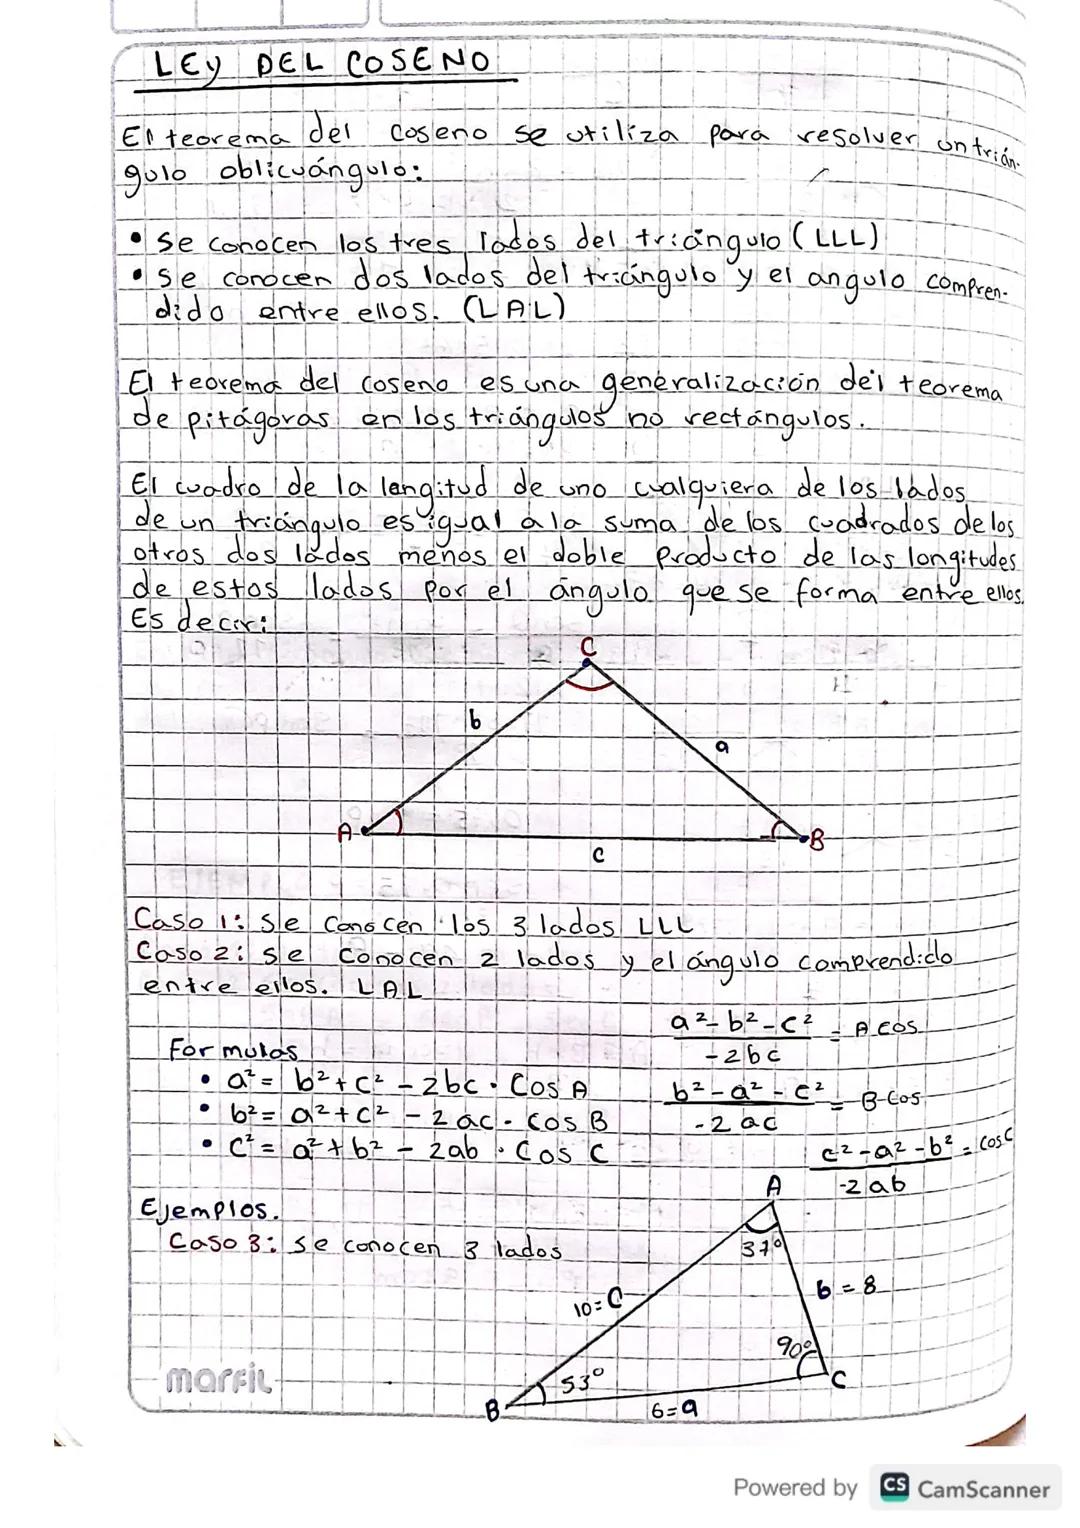 LEY DEL COSENO
El teorema del coseno se utiliza para resolver un trián-
gulo oblicuángulo:
• Se conocen los tres lados del triángulo (LLL)
• Se conocen dos lados del triángulo y el angulo compren-
dido entre ellos. (LAL)
El teorema del coseno es una generalización del teorema
de pitágoras en los triángulos no rectángulos.
El cuadro de la longitud de uno cualquiera de los lados
de un triángulo es igual a la suma de los cuadrados de los
otros dos lados menos el doble producto de las longitudes
de estos lados por el ángulo que se forma entre ellos.
Es decir:
C
b
a
A
B
c
Caso 1: Se conocen los 3 lados LLL
Caso 2: se conocen 2 lados y el ángulo comprendido
entre ellos. LAL
a² - b² - c² / -2bc = A cos
Formulas
• a² = b² + c² - 2bc · Cos A
b² - a² - c² / -2ac = B cos
• b² = a² + c² - 2ac · cos B
• c² = a² + b² - 2ab · Cos C
c² - a² - b² / -2ab = cos C
A
Ejemplos.
Caso 3: se conocen 3 lados
37°
b = 8
10 = C
90°
53°
C
B
6 = a
marfil
Powered by CS CamScanner